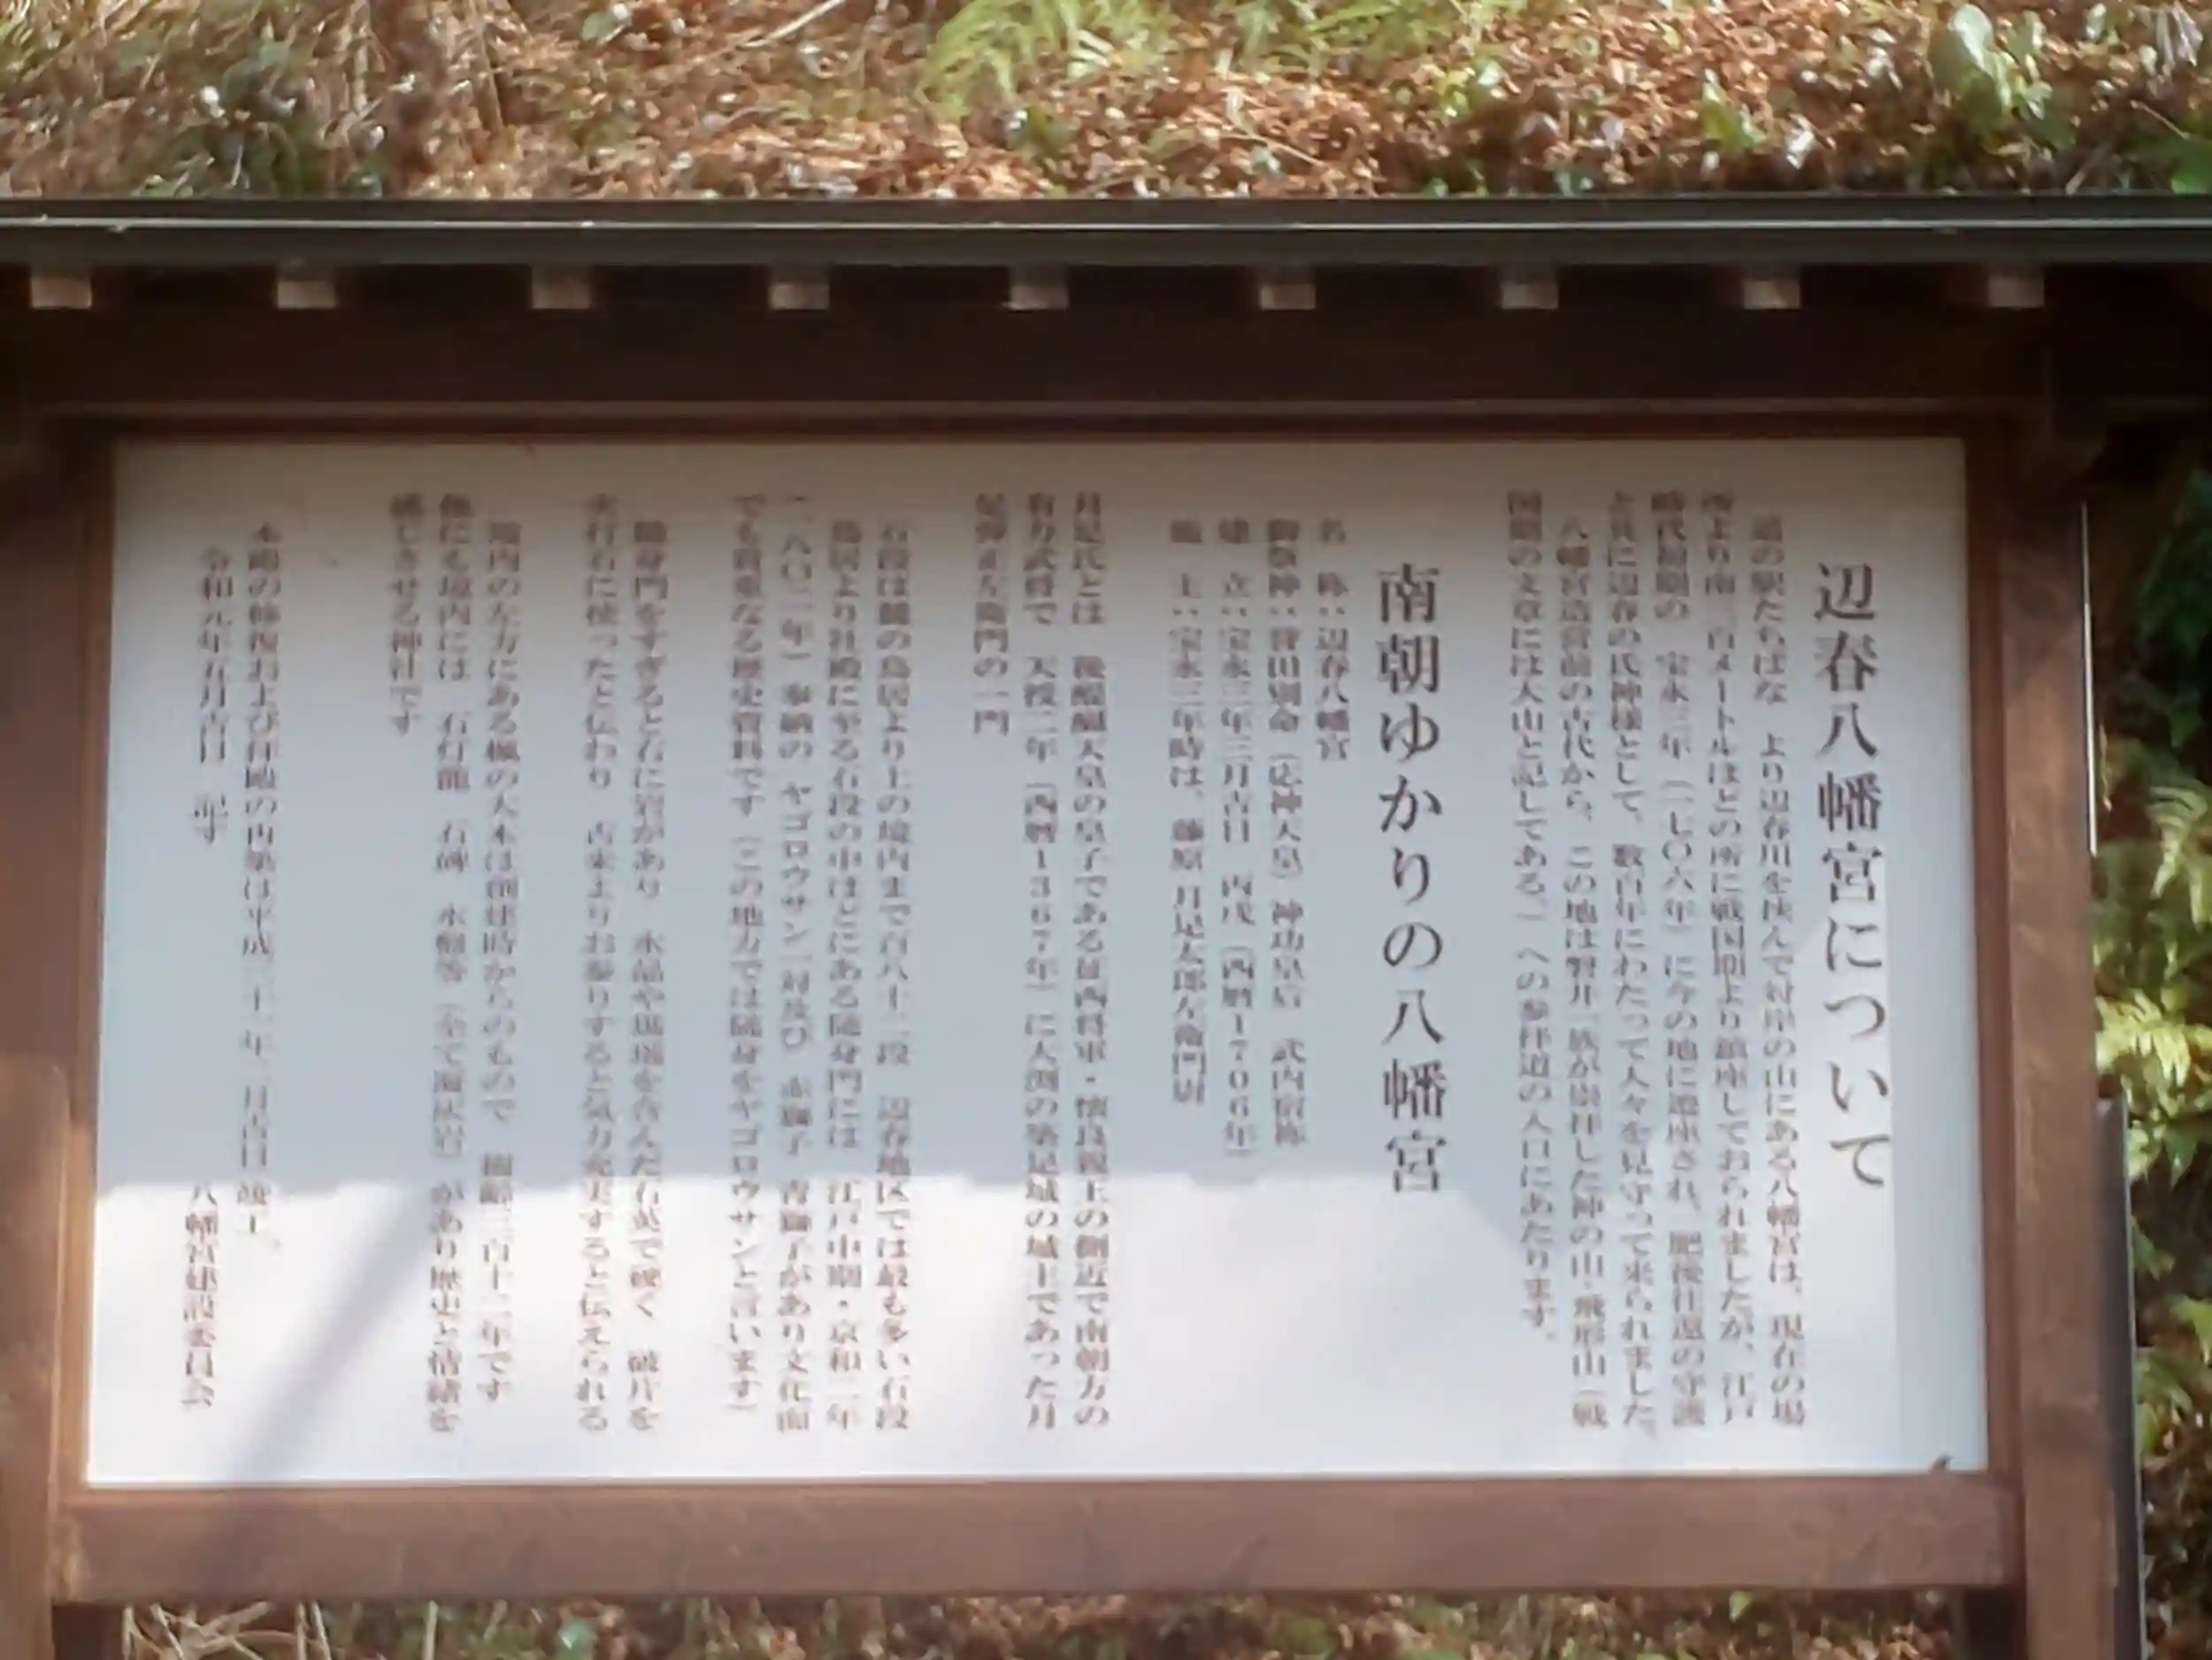 辺春八幡宮について
道の駅たちばな より辺春川を挟んで対岸の山にある八幡宮は、現在の場
所より南二百メートルほどの所に戦国期より鎮座しておられましたが、江戸
時代初期の 宝永三年(一七〇六年)に今の地に遷座され、肥後往還の守護
と共に辺春の氏神様として、数百年にわたって人々を見守って来られました。
八幡宮造営前の古代から、この地は磐井一族が崇拝した神の山・飛形山(戦
国期の文章には大山と記してある。)への参拝道の入口にあたります。
南朝ゆかりの八幡宮
名 称:辺春八幡宮
御祭神:誉田別命(応神天皇) 神功皇后 武内宿祢
建 立:宝永三年三月吉日 丙戌(西暦1706年)
施 主:宝永三年時は、藤原 月足太郎左衛門尉
月足氏とは 後醍醐天皇の皇子である征西将軍・懐良親王の側近で南朝方の
有力武将で 天授二年(西暦1367年)に大渕の築足城の城主であった月
足弾正左衛門の一門
石段は麓の鳥居より上の境内まで百八十二段 辺春地区では最も多い石段
鳥居より社殿に至る石段の中ほどにある随身門には 江戸中期・京和二年
(一八〇二年)奉納の ヤゴロウサン一対及び 赤獅子 青獅子があり文化面
でも貴重なる歴史資料です(この地方では随身をヤゴロウサンと言います)
随身門をすぎると右に岩があり 水晶や瑪瑙を含んだ石英で硬く 破片を
火打石に使ったと伝わり 古来よりお参りすると気力充実すると伝えられる
境内の左方にある楓の大木は創建時からのもので 樹齢三百十二年です
他にも境内には 石灯籠 石碑 水槽等(全て凝灰岩)があり歴史と情緒を
感じさせる神社です
本殿の修復および拝殿の再築は平成三十一年 月吉日竣工。
令和元年五月吉日 記す
八幡宮建設委員会